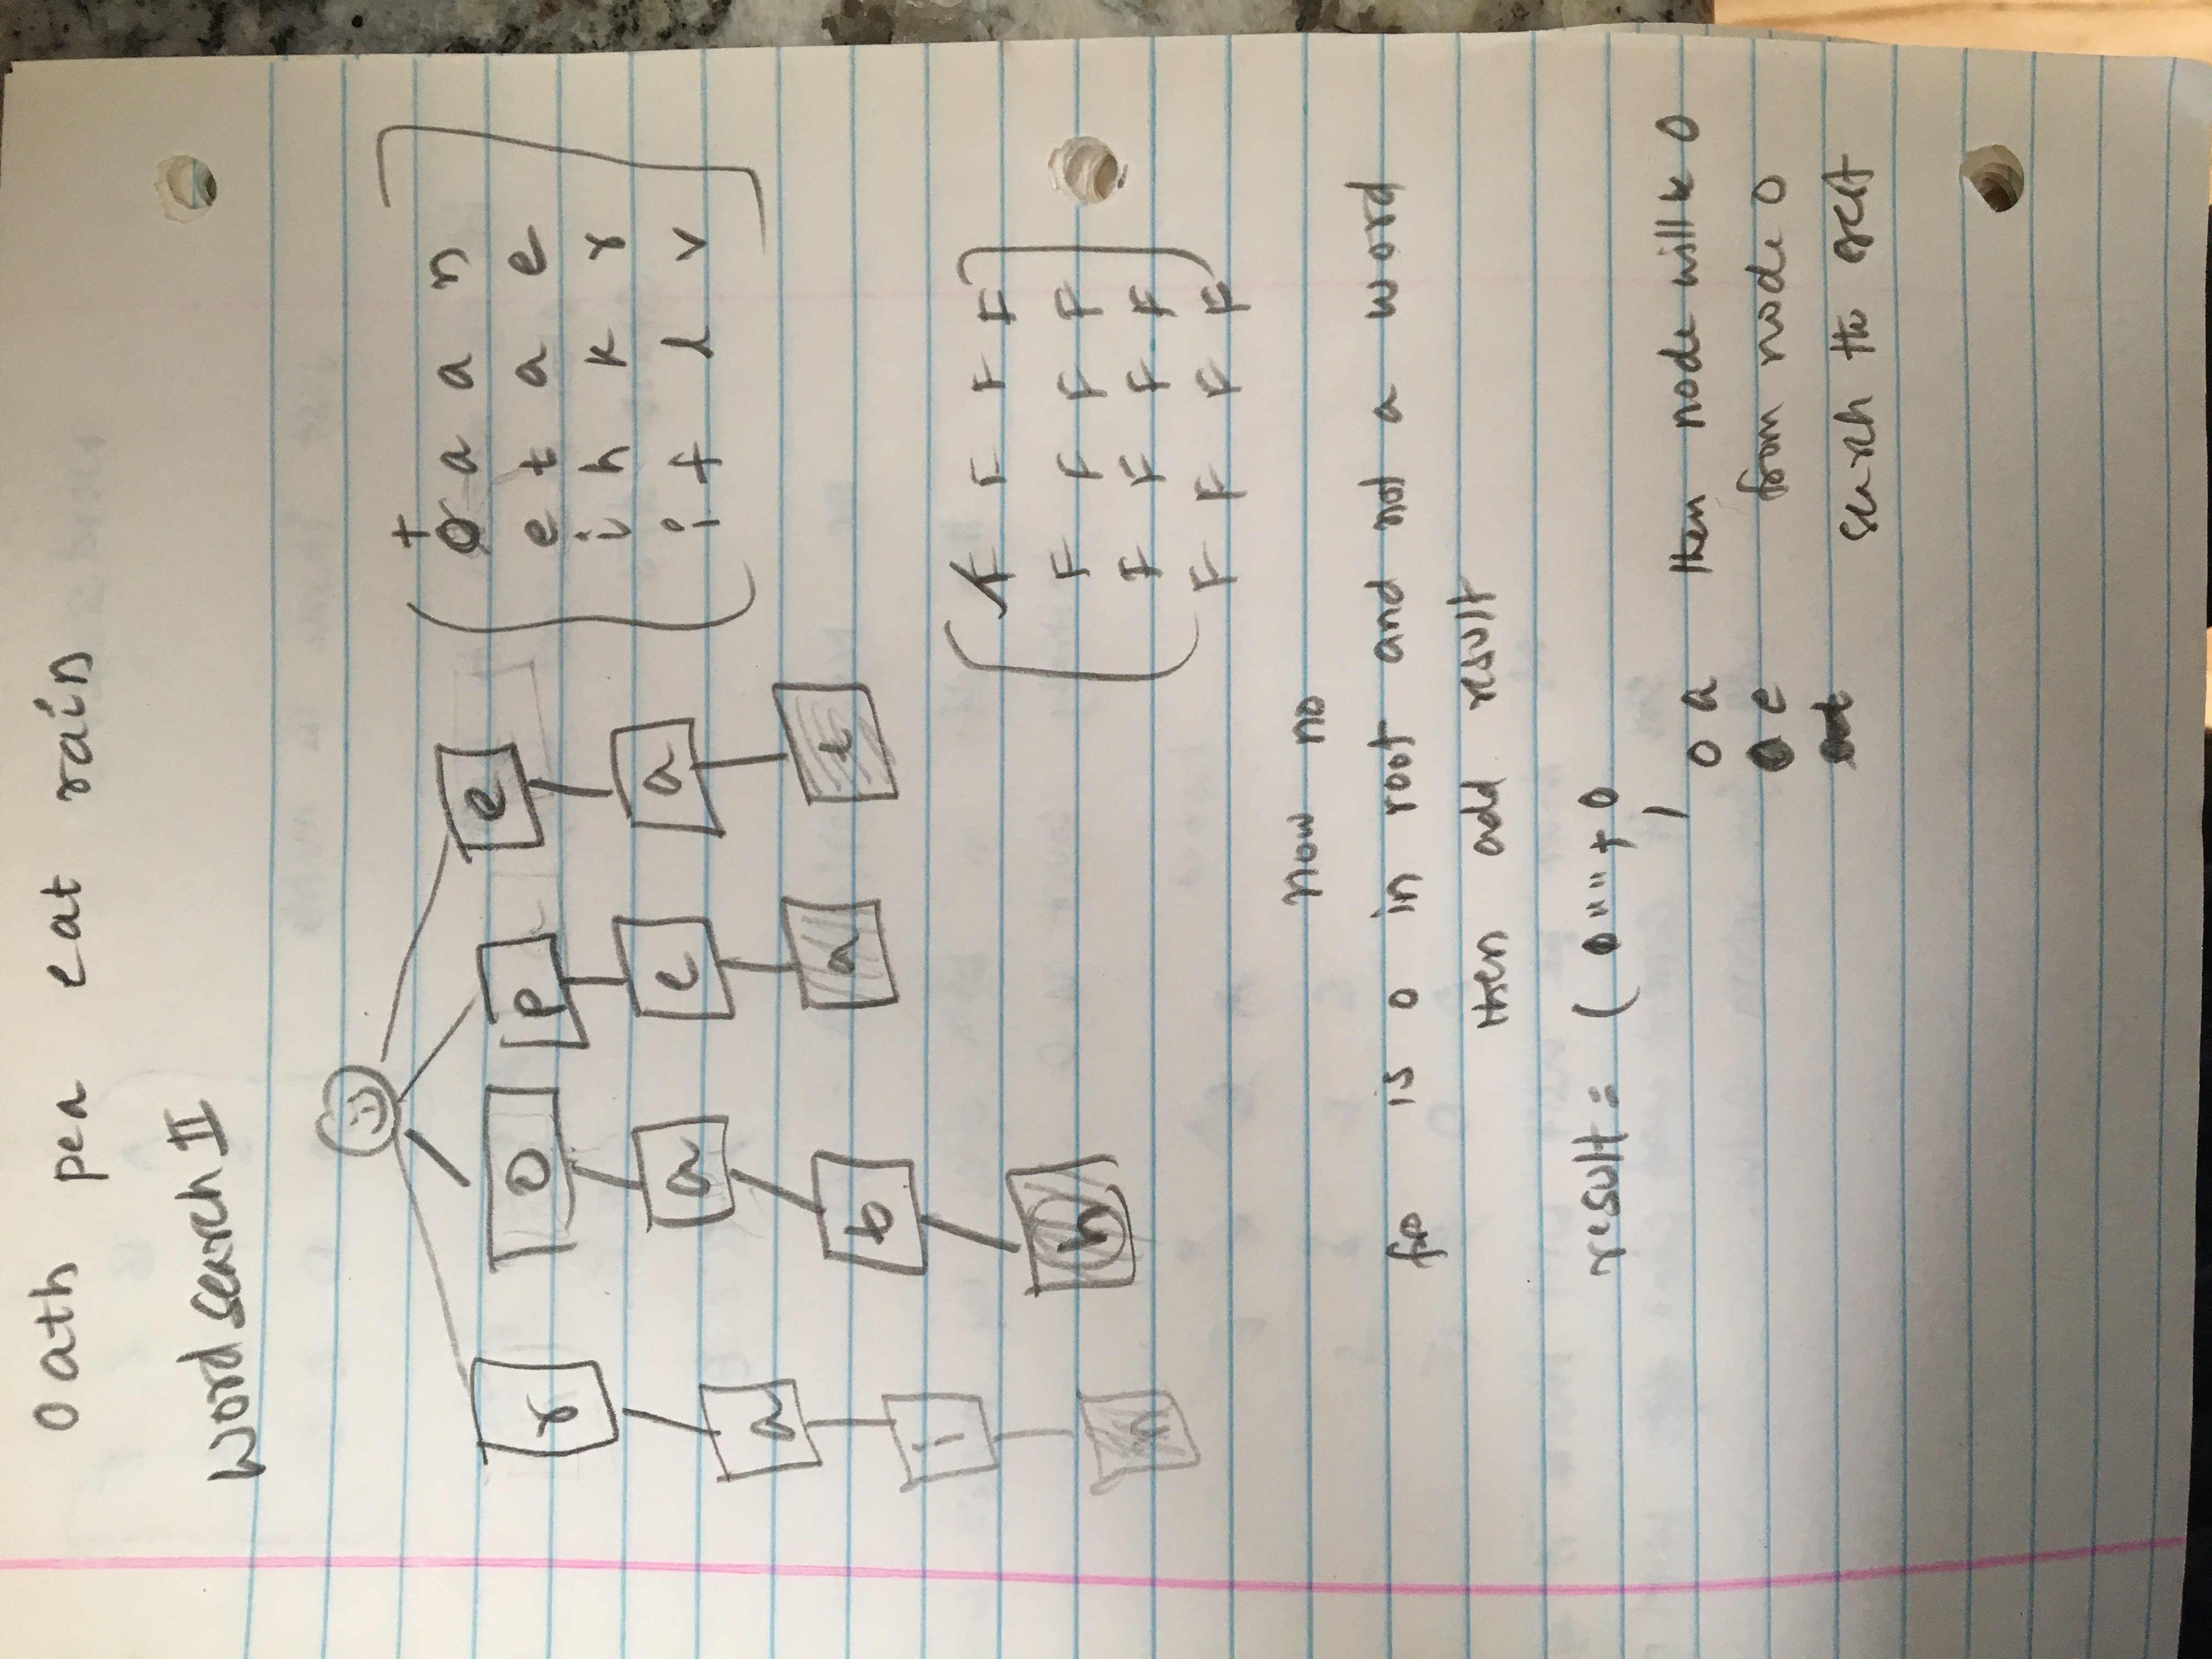 oath pea eat rain
Word search II
r
o
p
e
a
a
e
a
i
t
a
t
n
h
o a a n
e t a e
i h k r
i f l v
F F F F
F F F F
F F F F
F F F F
now no
is o in root and not a word
then add result
result = ( o "" + o
o a then node will be o
e from node o
search the rest